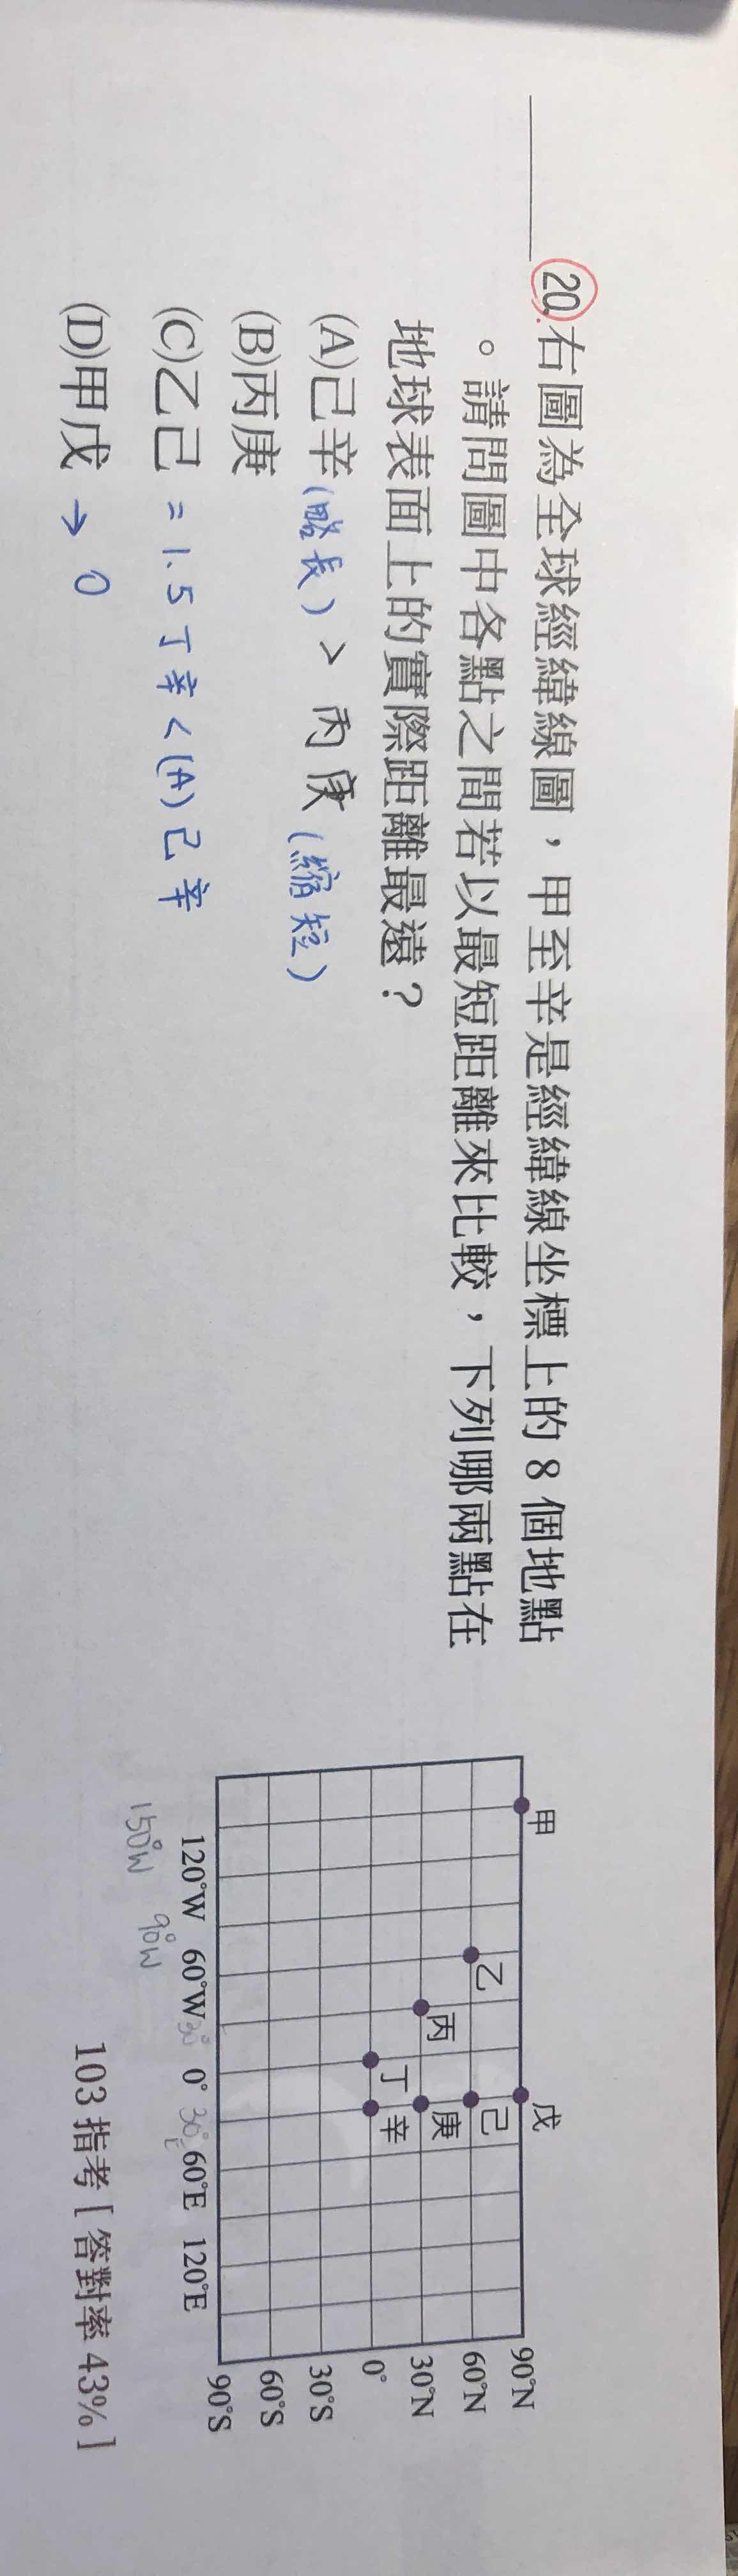 20.右圖為全球經緯線圖，甲至辛是經緯線坐標上的 8 個地點
。請問圖中各點之間若以最短距離來比較，下列哪兩點在
地球表面上的實際距離最遠？
(A)己辛(略長) > 丙庚(縮短)
(B)丙庚
(C)乙己 = 1.5丁辛 < (A)己辛
(D)甲戊 → 0
甲 戊
90°N
乙 己
60°N
丙 庚
30°N
丁 辛
0°
30°S
60°S
90°S
120°W 60°W 30° 0° 30°E 60°E 120°E
150°W 90°W
103 指考［答對率 43%］